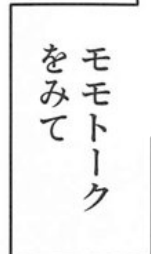 モモトーク
をみて